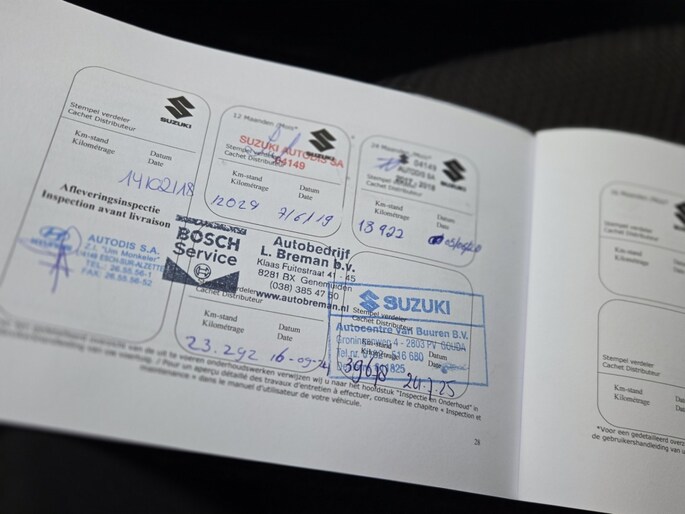 SUZUKI
Stempel verdeler
Cachet Distributeur
Km-stand Datum
Kilométrage Date
14/02/18
Afleveringsinspectie
Inspection avant livraison
AUTODIS S.A.
Z.I. "Um Monkeler"
ESCH-SUR-ALZETTE
TEL.: 26.55.56-1
FAX: 26.55.56-52
12 Maanden /Mois*
SUZUKI
SUZUKI AUTODIS SA
04149
Cachet Distributeur
Km-stand Datum
Kilométrage Date
12029 7/6/19
24 Maanden /Mois*
04149
AUTODIS SA
SUZUKI
Stempel verdeler
Cachet Distributeur
Km-stand Datum
Kilométrage Date
13922
BOSCH
Service
Autobedrijf
L. Breman b.v.
Klaas Fuitestraat 41 - 45
8281 BX Genemuiden
(038) 385 47 50
www.autobreman.nl
Cachet Distributeur
Km-stand Datum
Kilométrage Date
23.292 16-09-24
SUZUKI
Stempel verdeler
Cachet Distributeur
Autocentre Van Buuren B.V.
Groningenweg 4 - 2803 PV GOUDA
Tel.nr. 516 680
Km-stand Datum
Kilométrage Date
24-7-25
van de uit te voeren onderhoudswerken verwijzen wij u naar het hoofdstuk "Inspectie en Onderhoud" in
/ Pour un aperçu détaillé des travaux d'entretien à effectuer, consultez le chapitre « Inspection et
maintenance » dans le manuel d'utilisateur de votre véhicule.
28
Stempel verdeler
Cachet Distributeur
Km-stand
Kilométrage
Stempel verdeler
Cachet Distributeur
Km-stand
Kilométrage
*Voor een gedetailleerd
de gebruikershandleiding van